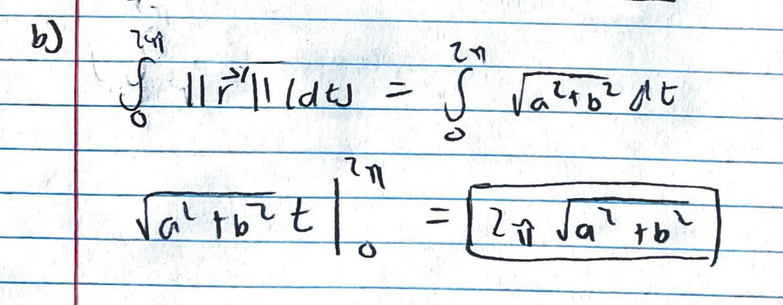 b) ∫₀^{2π} ||r⃗'|| (dt) = ∫₀^{2π} √(a²+b²) dt
√(a²+b²) t |₀^{2π} = 2π √(a²+b²)